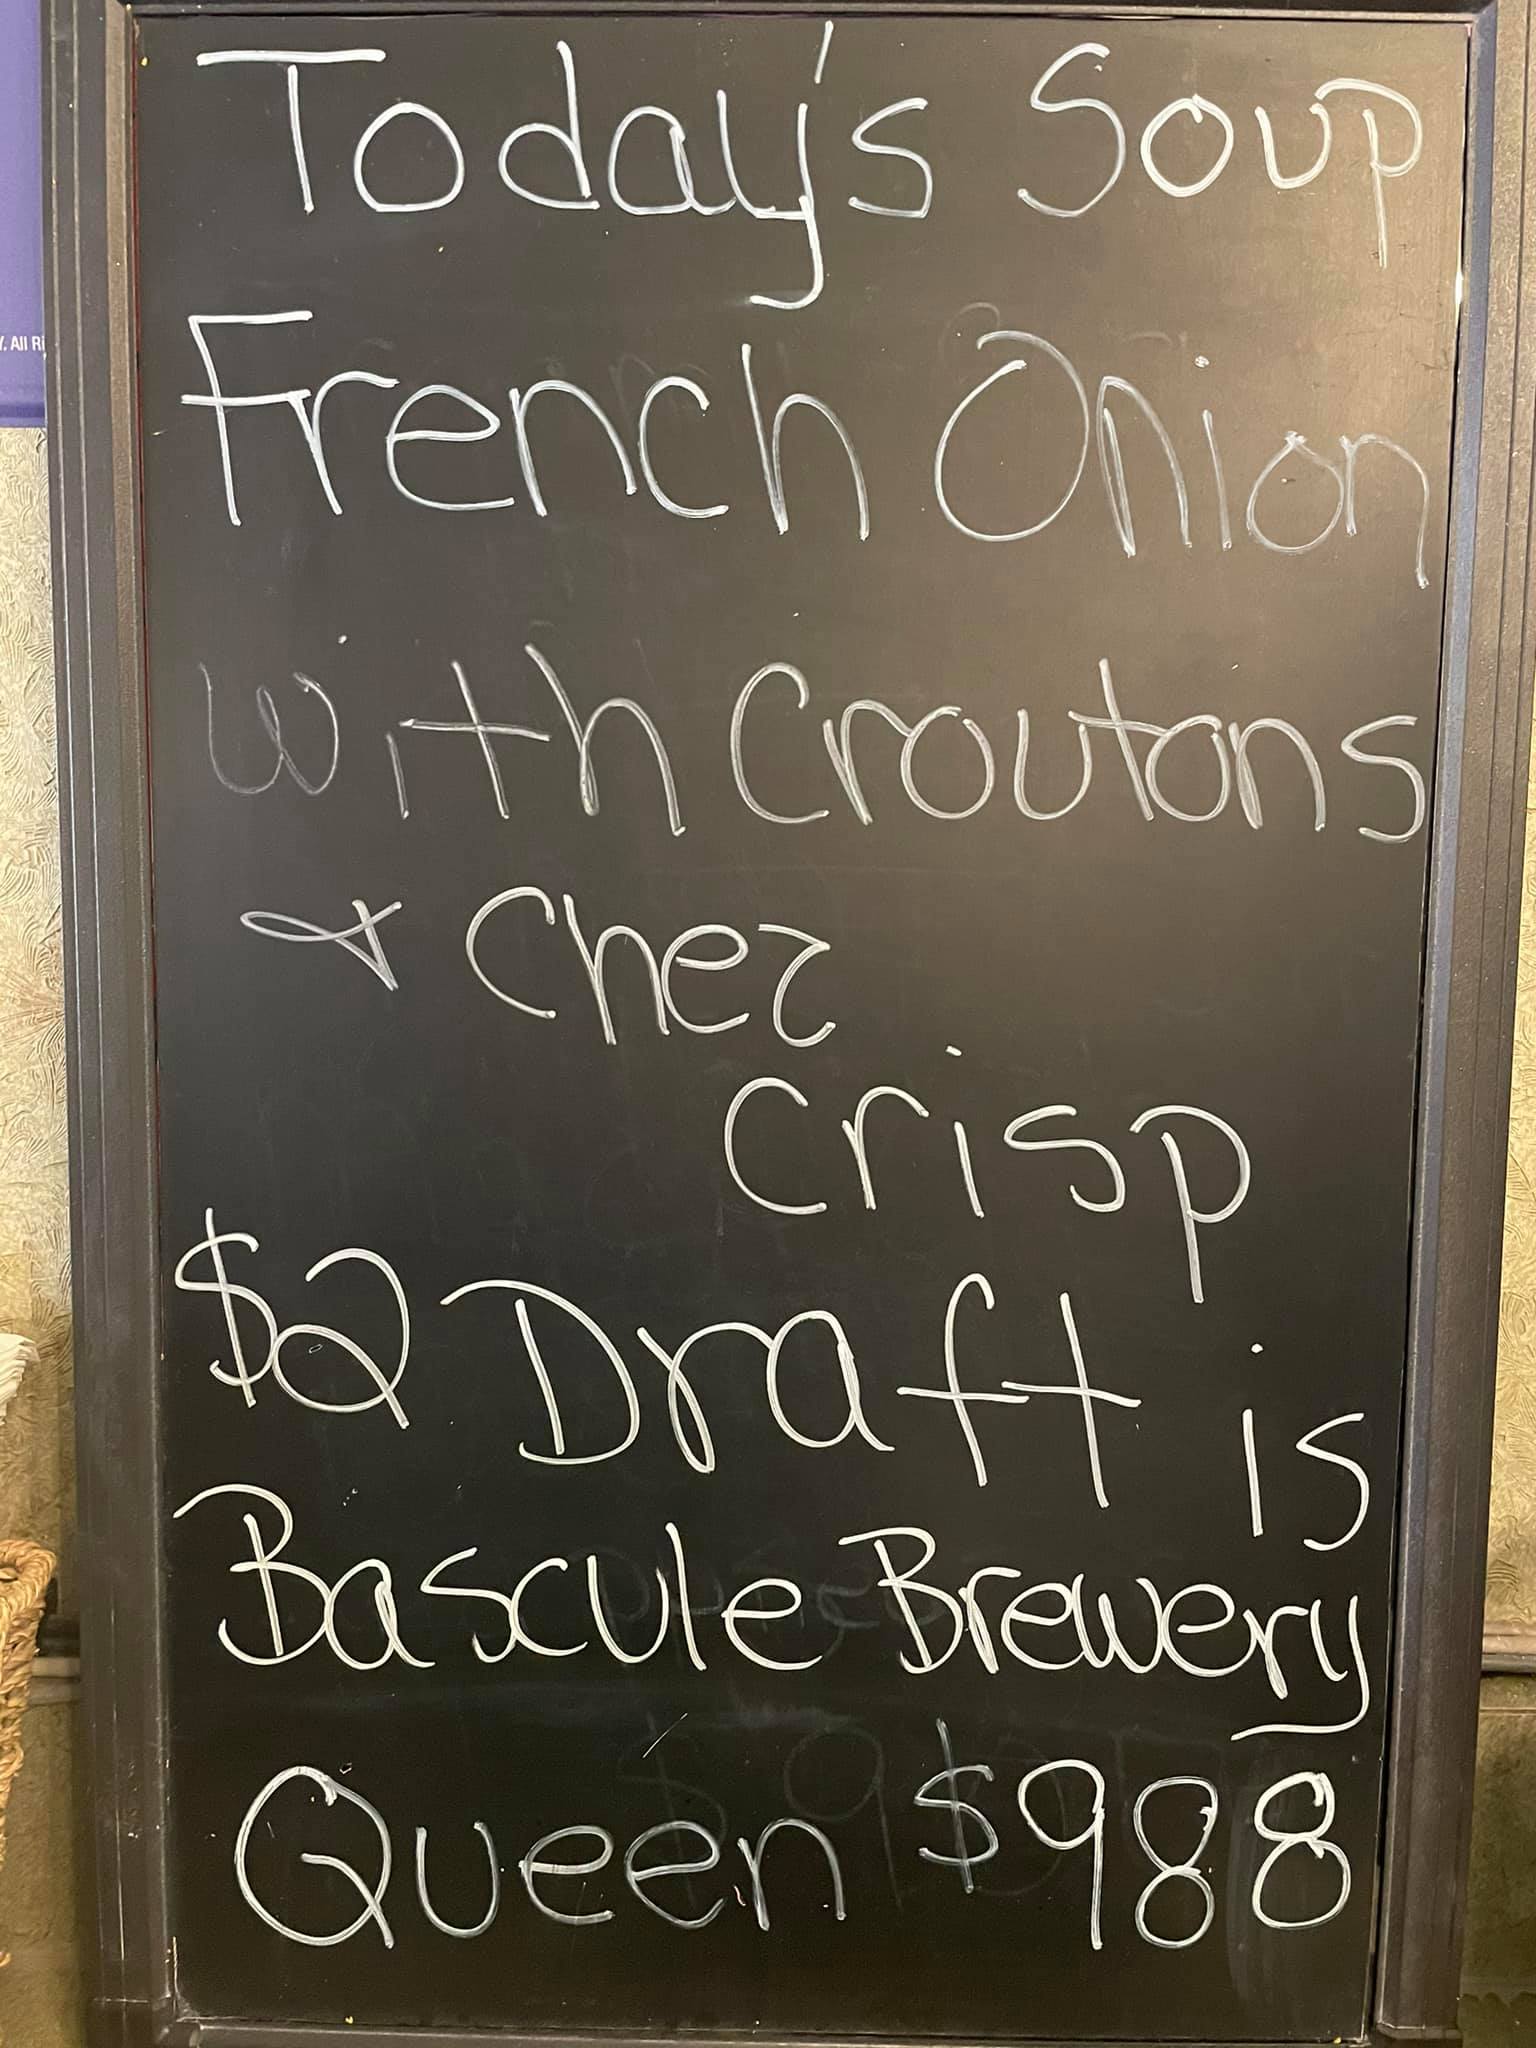 Today's Soup
Y. All Ri
French Onion
with Croutons
& Chez
Crisp
$2 Draft is
Bascule Brewery
Queen $988